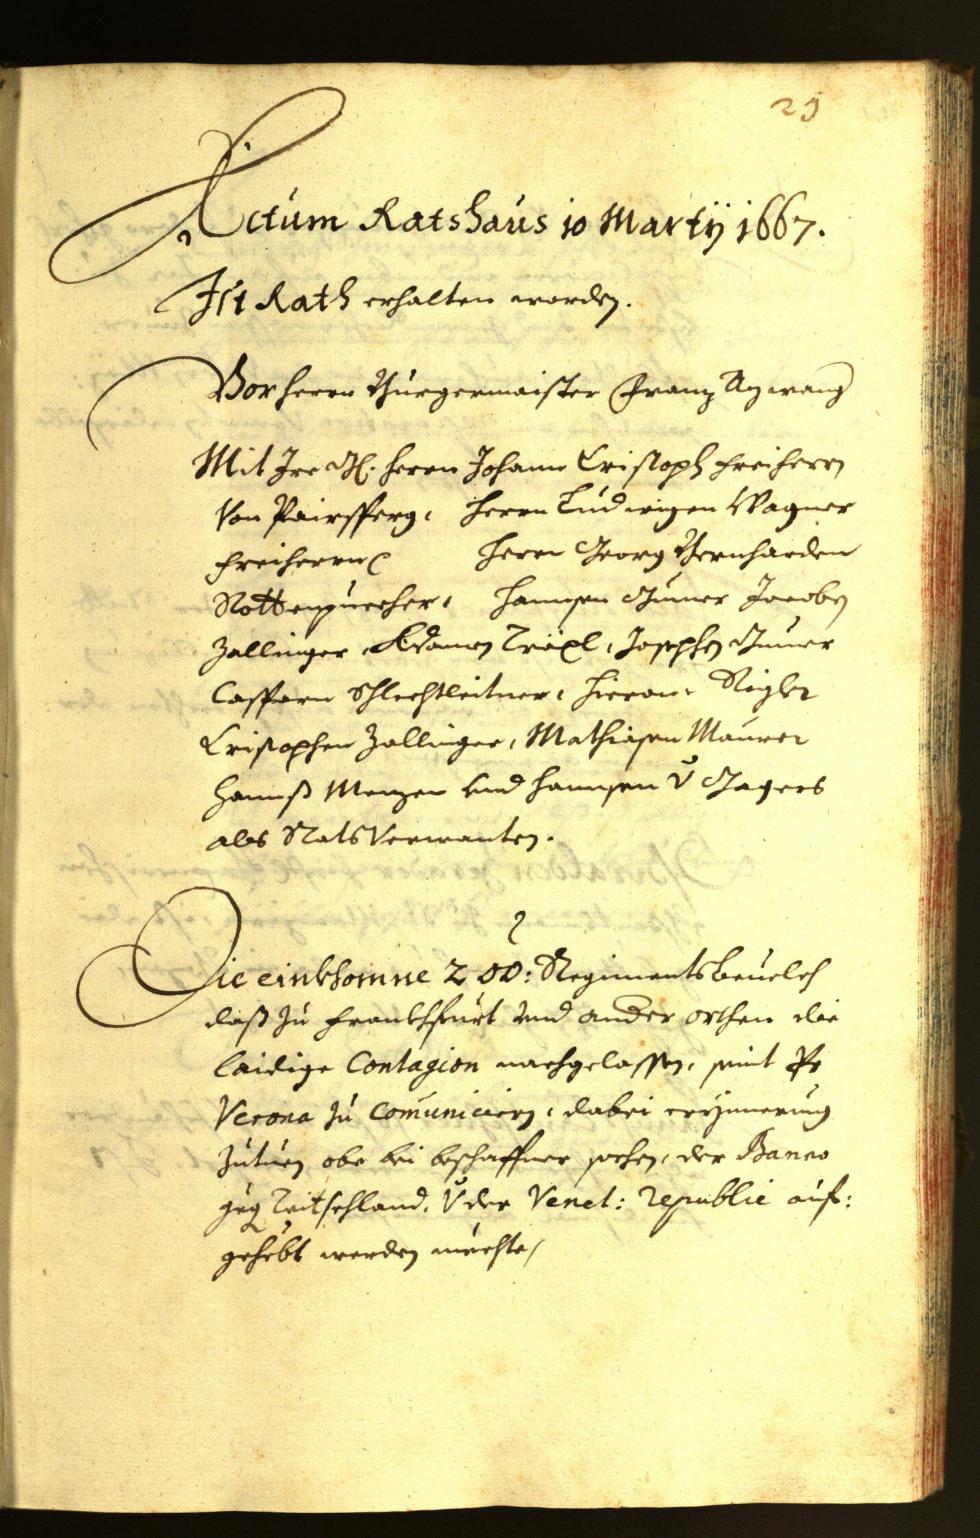 25
Actum Ratshaus 10 Martÿ 1667.
Ist Rath erhalten worden.
Vor herrn Bürgermaister Franz Azwang
Mit Ire G. herrn Johann Cristoph Freiherrn
Von Pairsperg, herrn Ludwigen Wagner
Freiherrn herrn Georg Bernharden
Rottenpuecher, hannsen Gumer Jacoben
Zallinger, Adamen Tröxl, Josephen Gumer
Casparn Schlechtleitner, hieron: Rigler
Cristophen Zallinger, Mathiasen Maurer
hannß Menzen und hannsen V Jagers
als Rats Verwanten.
2
Die einkhomne 2 OÖ: Regiments beuelch
daß zu Frankhfurt und ander orthen die
laidige Contagion nachgelassen, seint Pr
Verona zu Comuniciern, dabei erÿnnerung
zutuen obe bei beschaffner sachen, der Banno
geg Teitschland, V der Venet: republic auf:
gehebt werden mechte/